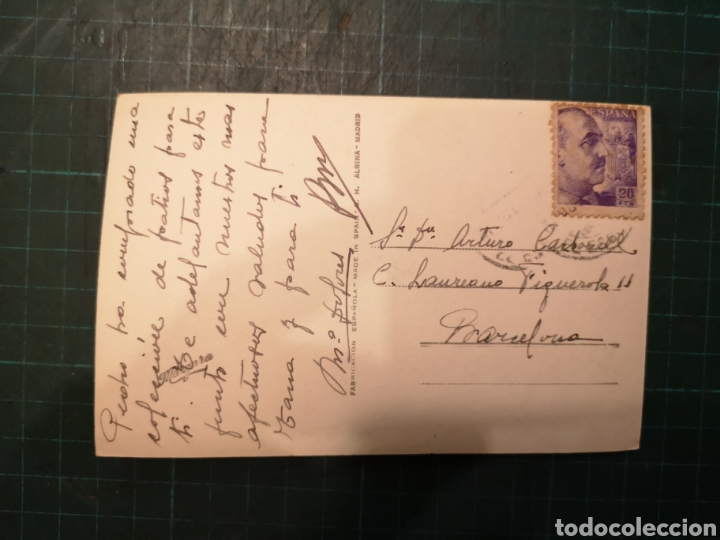 Pedro ha comprado una
colección de patios para
ti. Te adelantamos este
junto con nuestros mas
afectuosos saludos para
Tana y para ti
Mª Dolores
FABRICACION ESPAÑOLA - MADE IN SPAIN - H. ALBINA - MADRID
ESPAÑA
20
CTS
Arturo Carbonell
C. Laureano Figuerola 11
Barcelona
todocoleccion